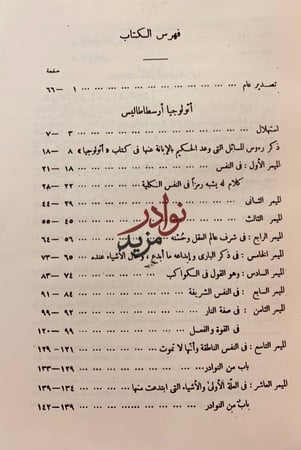 فهرس الكتاب
صفحة
تصدير عام ... ١ — ٦٦
أثولوجيا أرسطاطاليس
استهلال ... ٣ — ٧
ذكر رءوس المسائل التى وعد الحكيم بالإبانة عنها فى كتاب « أثولوجيا » ٨ — ١٨
الميمر الأول : فى النفس ... ١٨ — ٢١
كلام له يشبه رمزاً فى النفس الكلية ... ٢٢ — ٢٨
الميمر الثانى ... ٢٩ — ٤٤
الميمر الثالث ... ٤٥ — ٥٥
الميمر الرابع : فى شرف عالم العقل وحسنه ... ٥٦ — ٦٤
الميمر الخامس : فى ذكر البارى وإبداعه ما أبدع ، وحال الأشياء عنده ... ٦٥ — ٧٣
الميمر السادس : وهو القول فى الكواكب ... ٧٤ — ٨٣
الميمر السابع : فى النفس الشريفة ... ٨٤ — ٩١
الميمر الثامن : فى صفة النار ... ٩٢ — ٩٩
فى القوة والفعل ... ٩٩ — ١٢٠
الميمر التاسع : فى النفس الناطقة وأنها لا تموت ... ١٢١ — ١٢٩
باب من النوادر ... ١٢٩ — ١٣٣
الميمر العاشر : فى العلة الأولى والأشياء التى ابتدعت منها ... ١٣٤ — ١٣٩
باب من النوادر ... ١٣٩ — ١٤٢
نوادر
مزيد